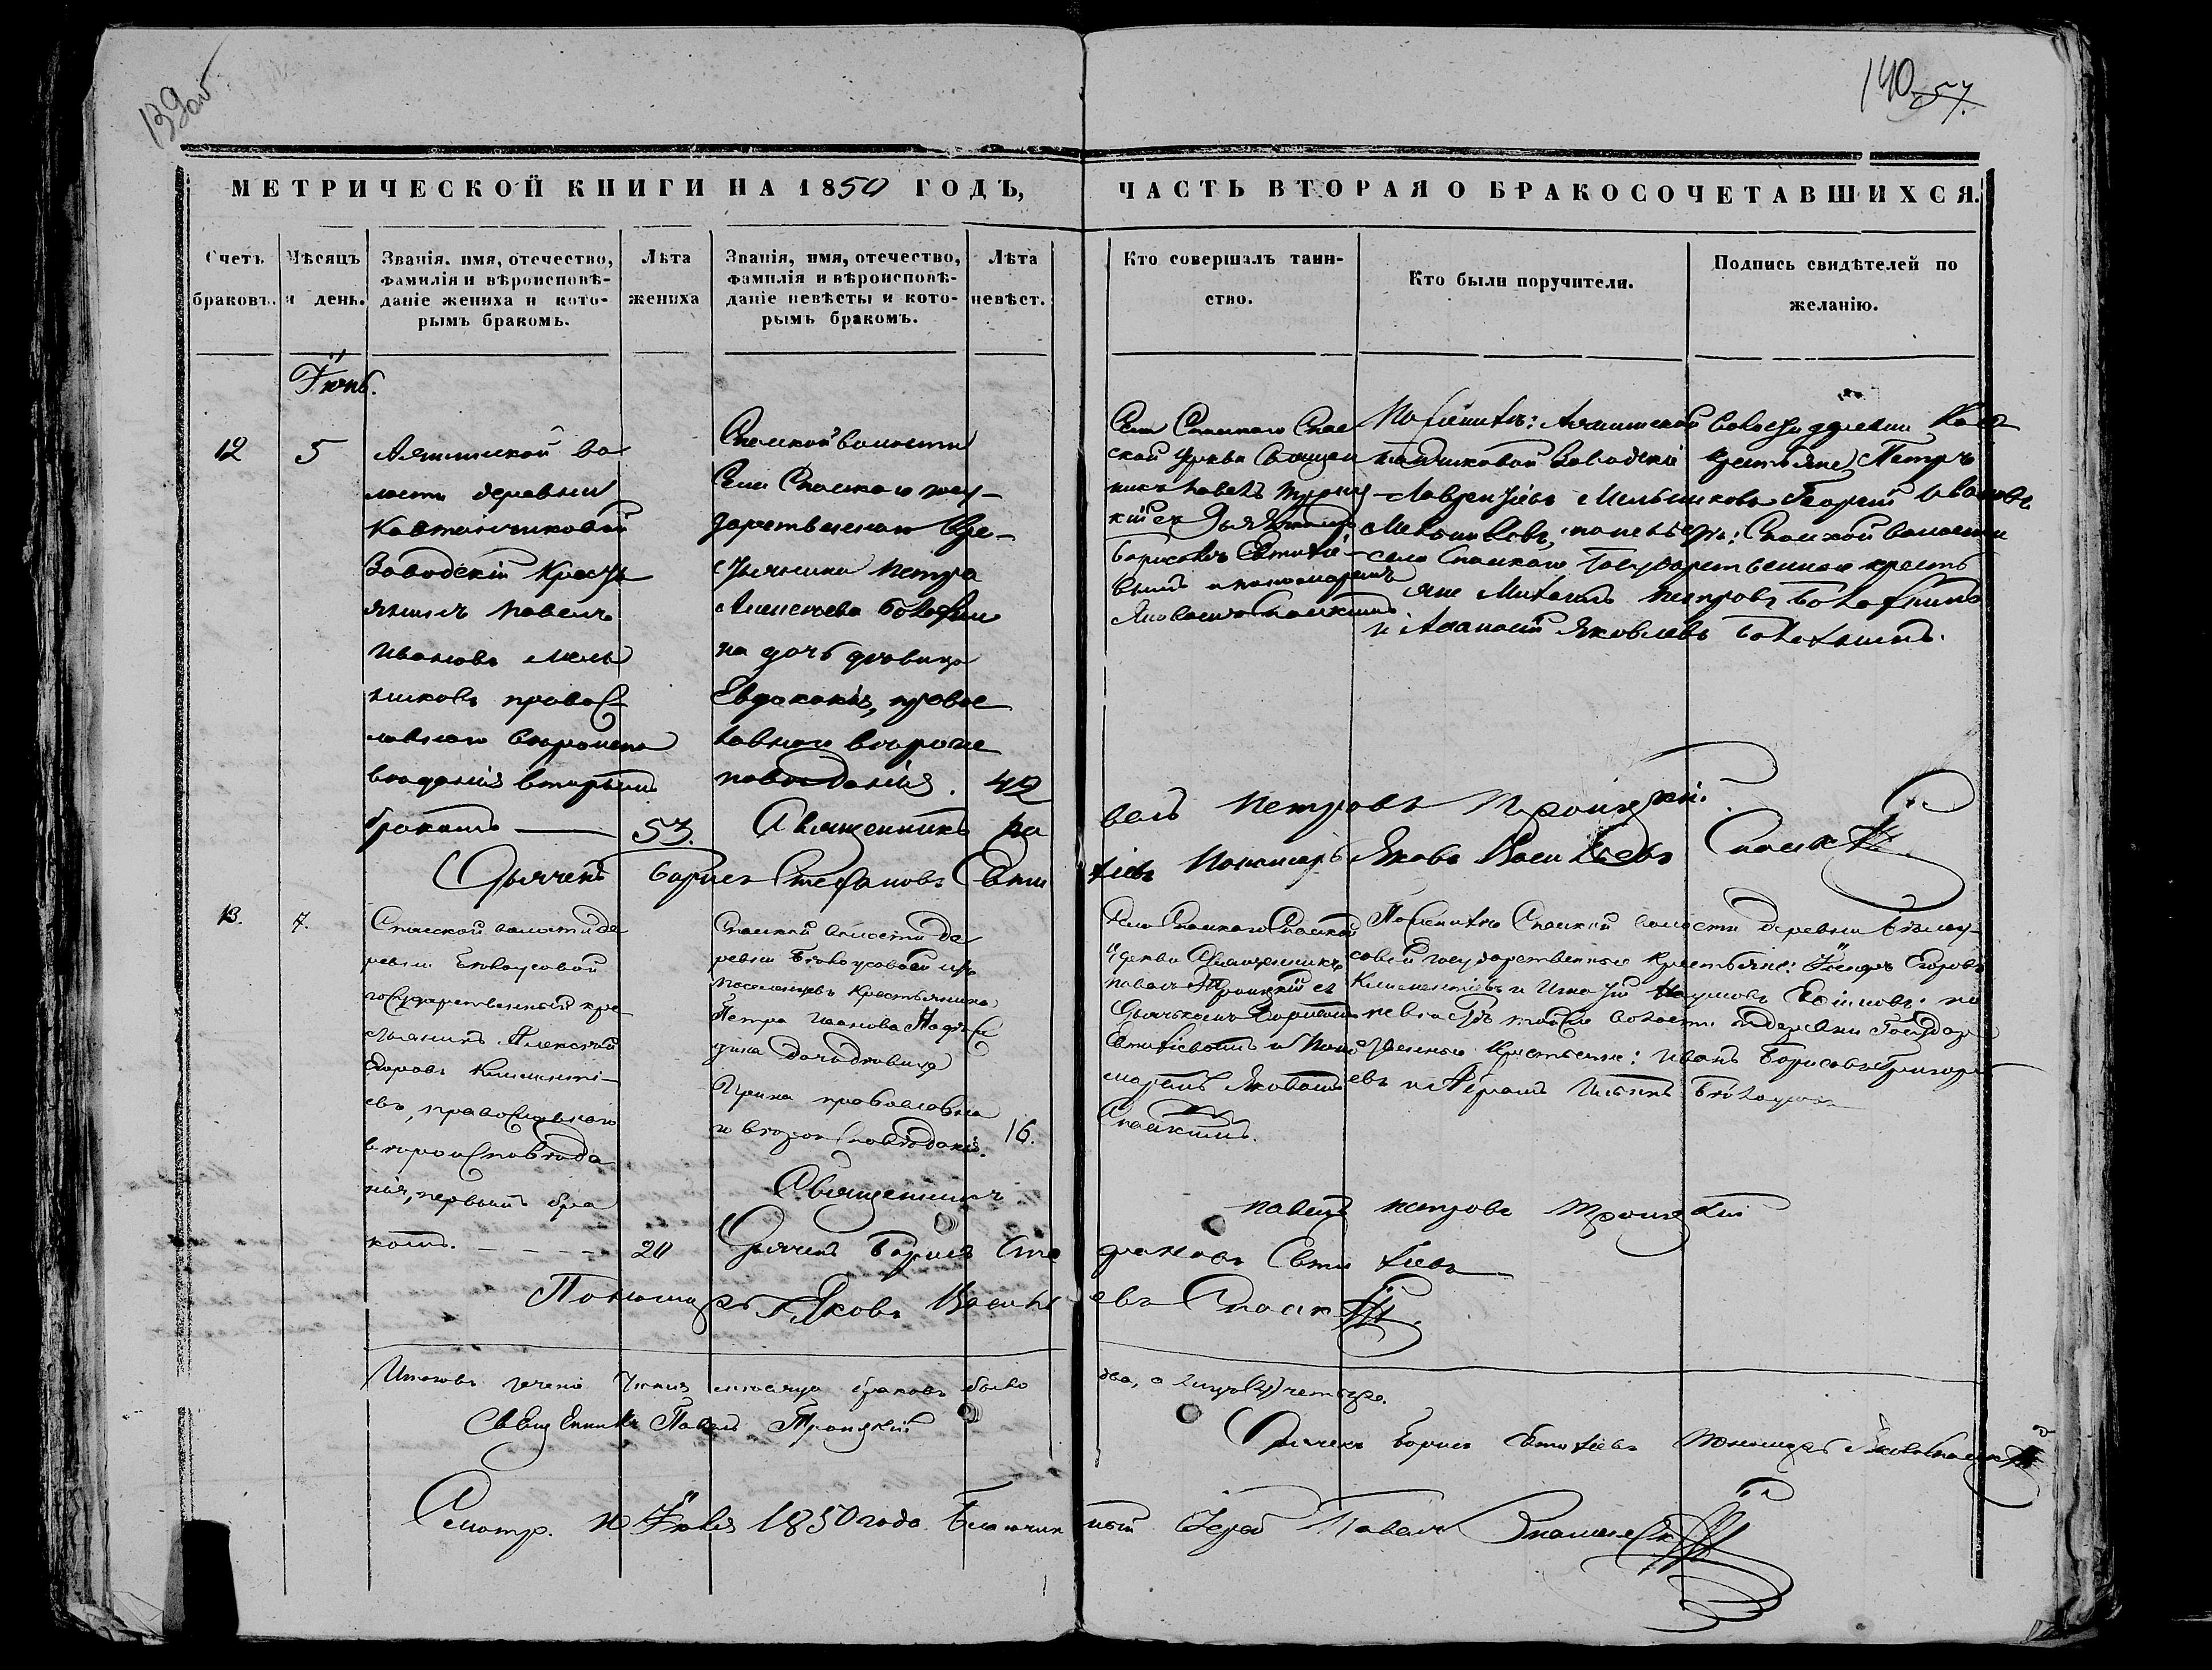 139об
140 57.
МЕТРИЧЕСКОЙ КНИГИ НА 1850 ГОДЪ,
ЧАСТЬ ВТОРАЯ О БРАКОСОЧЕТАВШИХСЯ.
Счетъ браковъ.
Мѣсяцъ и день.
Званія. имя, отечество,
фамилія и вѣроисповѣ-
даніе жениха и кото-
рымъ бракомъ.
Лѣта
жениха
Званія, имя, отечество,
фамилія и вѣроисповѣ-
даніе невѣсты и кото-
рымъ бракомъ.
Лѣта
невѣст.
Кто совершалъ таин-
ство.
Кто были поручители.
Подпись свидѣтелей по
желанію.
Іюнь.
12
5
во
лости деревни
Заводскій Кресть
янинъ Павелъ
Ивановъ Мель
никовъ правос
лавнаго вѣроиспо
вѣданія вторымъ
бракомъ — 53.
Спаской волости
Села Спаскаго госу-
дарственнаго Кре-
стьянина Петра
Алексѣева
на дочь дѣвица
Евдокія, правос
лавнаго вѣроис
повѣданія. 42
Села Спаскаго Спас
ской церкви Священ
никъ Павелъ Троиц
кій съ Дьячкомъ
Борисомъ Евтихіе-
вымъ и пономаремъ
Яковомъ Спаскимъ.
По женихѣ: волости деревни
Заводскіе крестьяне Петръ
Лаврентьевъ Мельниковъ Георгій Ивановъ
Мельниковъ, по невѣстѣ: Спаской волости
села Спаскаго Государственные кресть
яне Михаилъ Петровъ
и Афанасій Яковлевъ
Священникъ Па
велъ Петровъ Троицкій.
Дьячекъ Борисъ Стефановъ Евти
хіевъ Пономарь Яковъ Васильевъ Спаскій.
13.
7.
Спаской волости де
ревни Бѣлоусовой
государственный кре-
стьянинъ Алексѣй
Егоровъ Климентi-
евъ, православнаго
вѣроисповѣда
нія, первымъ бра
комъ. - - - - 20
Спаской волости де
ревни Бѣлоусовой изъ
поселенцевъ Крестьянина
Петра Иванова
дочь дѣвица
Ирина православна
го вѣроисповѣданія. 16.
Села Спаскаго Спаской
Церкви Священникъ
Павелъ Троицкій съ
Дьячкомъ Борисомъ
Евтихіевымъ и Поно
маремъ Яковомъ
Спаскимъ.
По женихѣ Спаской волости деревни Бѣлоу-
совой государственные крестьяне: Егоровъ
Климентіевъ и Игнатій Наумовъ по
невѣстѣ той же волости и деревни Государ
ственные Крестьяне: Иванъ Борисовъ Григорь
евъ и Ильинъ Бѣлоусовъ
Священникъ
Павелъ Петровъ Троицкій
Дьячекъ Борисъ Сте
фановъ Евтихіевъ
Пономарь Яковъ Василь
евъ Спаскій.
Итого въ теченіи Іюня мѣсяца браковъ было два, а лицъ четыре.
Священникъ Павелъ Троицкій
Дьячекъ Борисъ Евтихіевъ Пономарь Яковъ Спаскій
Смотр. Іюля 1850 года Благочинный Іерей Павелъ